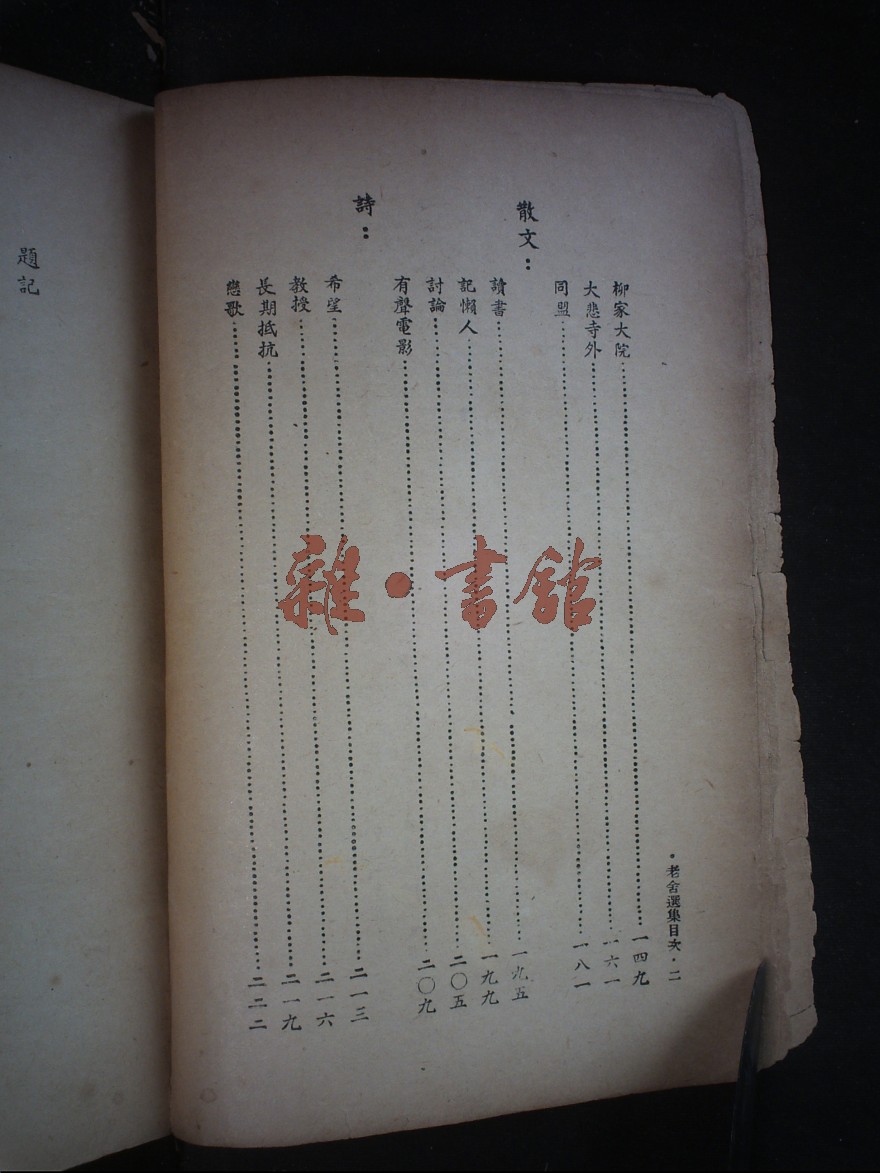 柳家大院……一四九
大悲寺外……一六一
同盟……一八一
散文：
讀書……一九五
記懶人……一九九
討論……二〇五
有聲電影……二〇九
詩：
希望……二一三
教授……二一六
長期抵抗……二一九
戀歌……二二二
•老舍選集目次•二
題記
雜•書館